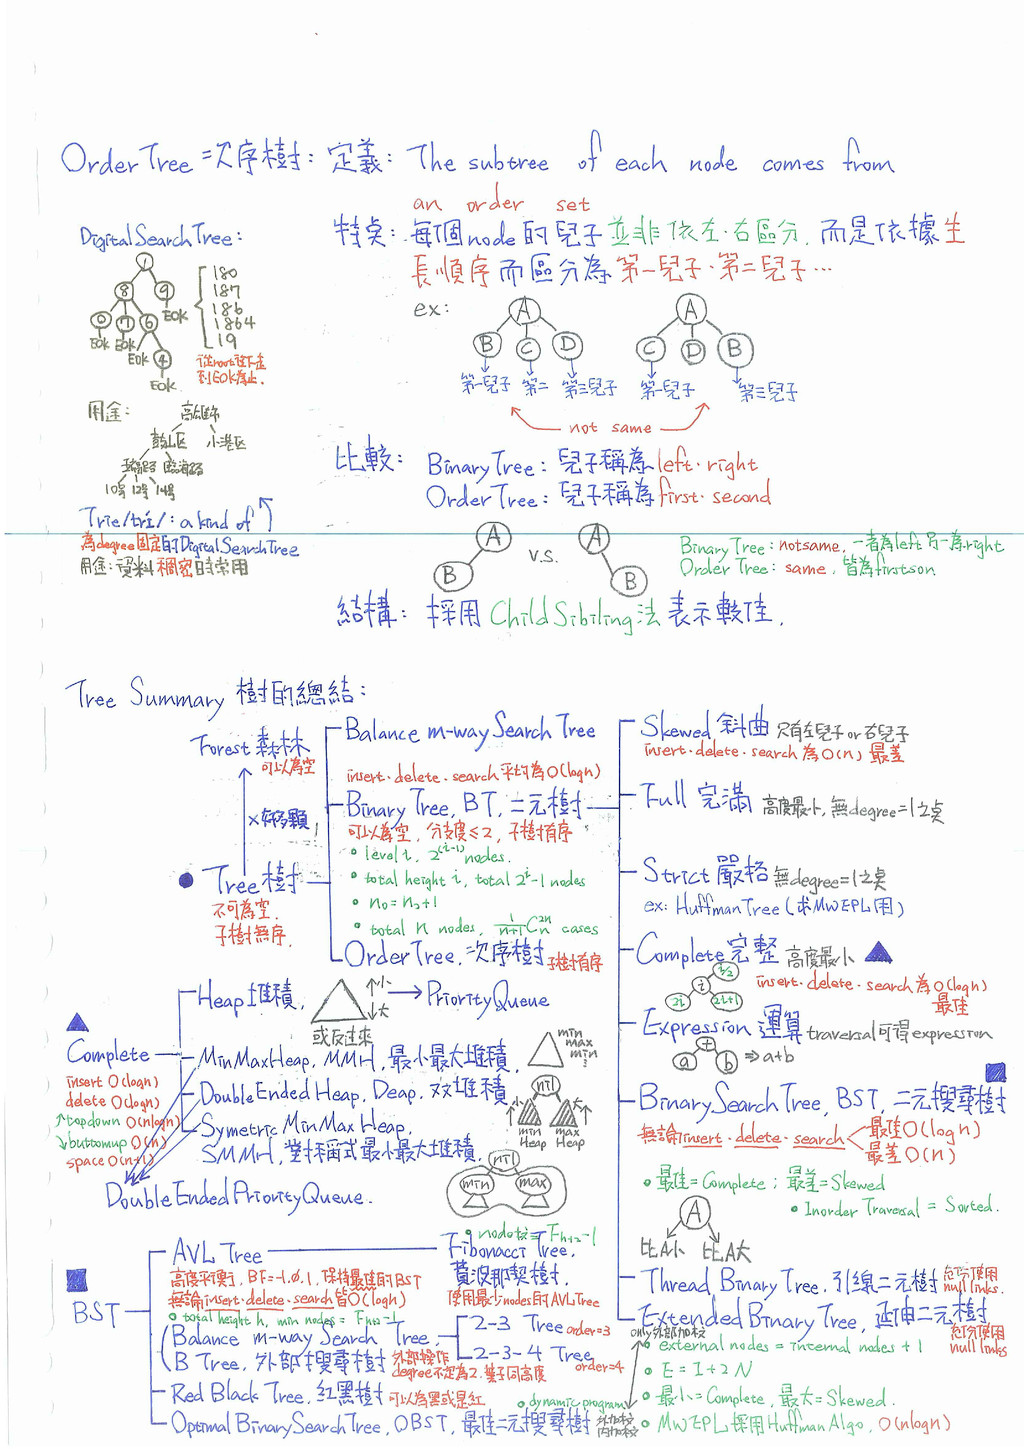 Order Tree 次序樹：定義：The subtree of each node comes from
an order set
特点：每個node的兒子並非依左右區分，而是依據生
長順序而區分為第一兒子、第二兒子…
Digital Search Tree：
1
8 9
0 7 6 EOK
EOK EOK EOK 4
EOK
180
187
186
1864
19
從root往下走
到EOK為止.
ex:
A
B C D
第一兒子 第二 第三兒子
A
C D B
第一兒子 第三兒子
not same
用途：
高雄市
鼓山区 小港区
臨海路
10号 12号 14号
Trie/trī/: a kind of
為degree固定的Digital Search Tree
用途：資料稠密時常用
比較：Binary Tree：兒子稱為left、right
Order Tree：兒子稱為first、second
A
B
v.s.
A
B
Binary Tree：not same, 一者為left另一為right
Order Tree：same, 皆為firstson.
結構：採用Child Sibiling法表示較佳.
Tree Summary 樹的總結：
Forest 森林
可以為空
×好多顆
Tree 樹
不可為空.
子樹無序.
Balance m-way Search Tree
insert、delete、search平均為O(logn)
Binary Tree, BT, 二元樹
可以為空, 分支度≤2, 子樹有序
level i, 2^(i-1) nodes.
total height i, total 2^i-1 nodes
n0=n2+1
total n nodes, 1/(n+1) C 2n n cases
Order Tree, 次序樹 子樹有序
Skewed 斜曲 只有左兒子or右兒子
insert、delete、search為O(n) 最差
Full 完滿 高度最小, 無degree=1之点
Strict 嚴格 無degree=1之点
ex: Huffman Tree (求MWEPL用)
Complete 完整 高度最小
i/2
i
2i 2i+1
insert、delete、search為O(logn)
最佳
Expression 運算 traversal可得expression
+
a b ⇒a+b
Binary Search Tree, BST, 二元搜尋樹
無論insert、delete、search
最佳O(logn)
最差O(n)
最佳=Complete；最差=Skewed
Inorder Traversal = Sorted.
A
比A小 比A大
Thread Binary Tree, 引線二元樹 充分使用
null links.
Extended Binary Tree, 延伸二元樹
充分使用
null links
only外部加权
external nodes = internal nodes + 1
E = I + 2N
最小=Complete, 最大=Skewed.
MWEPL 採用Huffman Algo, O(nlogn)
Complete
insert O(logn)
delete O(logn)
↑topdown O(nlogn)
↓buttomup O(n)
space O(n+1)
Heap 堆積,
↑小
↓大
或反过來
→ Priority Queue
Min Max Heap, MMH, 最小最大堆積,
min
max
min
:
Double Ended Heap, Deap, 双堆積
nil
小 大
min
Heap
max
Heap
Symetric Min Max Heap,
SMMH, 對稱式最小最大堆積.
nil
min max
Double Ended Priority Queue.
BST
AVL Tree
高度平衡, BF=-1.0.1, 保持最佳的BST
無論insert、delete、search皆O(logn)
total height h, min nodes = Fh+2-1
node数≥Fh+2-1
Fibonacci Tree,
費波那契樹,
使用最少nodes的AVL Tree
Balance m-way Search Tree
B Tree, 外部搜尋樹 外部操作
degree不定為2, 葉子同高度
2-3 Tree order=3
2-3-4 Tree
order=4
Red Black Tree, 紅黑樹 可以為黑或是紅
dynamic program
Optimal Binary Search Tree, OBST, 最佳二元搜尋樹
外加权
內加权